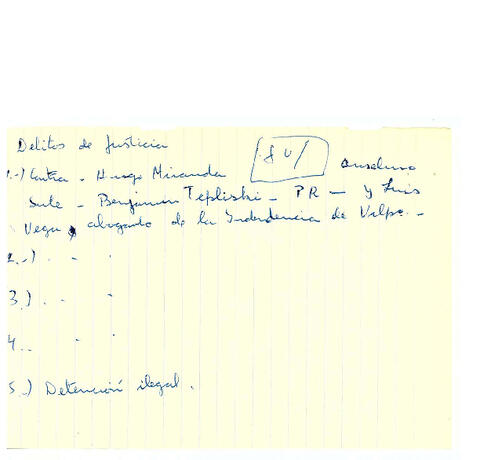 Delitos de Justicia
1.-) Contra - Hugo Miranda Anselmo
Sule - Benjamin Tepliski - PR - y Luis
Vega abogado de la Intendencia de Valpo. -
2.-) . - -
3.) . - -
4.. - -
5.-) Detención ilegal.